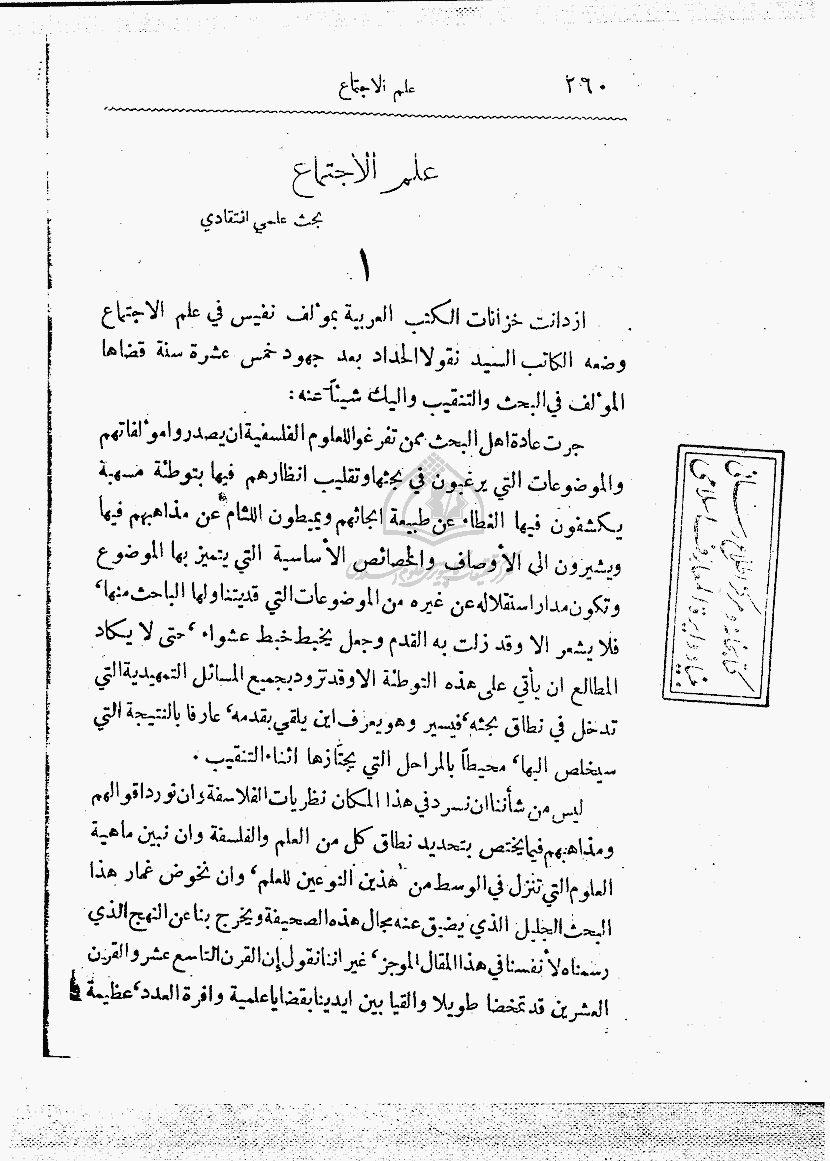 ٢٩٠
علم الاجتماع
علم الاجتماع
بحث علمي انتقادي
١
ازدانت خزانات الكتب العربية بمؤلف نفيس في علم الاجتماع
وضعه الكاتب السيد نقولا الحداد بعد جهود خمس عشرة سنة قضاها
المؤلف في البحث والتنقيب واليك شيئاً عنه :
جرت عادة اهل البحث ممن تفرغوا للعلوم الفلسفية ان يصدروا مؤلفاتهم
والموضوعات التي يرغبون في بحثها وتقليب انظارهم فيها بتوطئة مسهبة
يكشفون فيها الغطاء عن طبيعة ابحاثهم ويميطون اللثام عن مذاهبهم فيها
ويشيرون الى الأوصاف والخصائص الأساسية التي يتميز بها الموضوع
وتكون مدار استقلاله عن غيره من الموضوعات التي قد يتناولها الباحث منها،
فلا يشعر الا وقد زلت به القدم وجعل يخبط خبط عشواء، حتى لا يكاد
المطالع ان يأتي على هذه التوطئة الا وقد تزود بجميع المسائل التمهيدية التي
تدخل في نطاق بحثه، فيسير وهو يعرف اين يلقي بقدمه، عارفا بالنتيجة التي
سيخلص اليها، محيطاً بالمراحل التي يجتازها اثناء التنقيب .
ليس من شأننا ان نسرد في هذا المكان نظريات الفلاسفة وان نورد اقوالهم
ومذاهبهم فيما يختص بتحديد نطاق كل من العلم والفلسفة وان نبين ماهية
العلوم التي تنزل في الوسط من هذين النوعين للعلم، وان نخوض غمار هذا
البحث الجليل الذي يضيق عنه مجال هذه الصحيفة ويخرج بنا عن النهج الذي
رسمناه لأنفسنا في هذا المقال الموجز، غير اننا نقول إن القرن التاسع عشر والقرن
العشرين قد تمخضا طويلا والقيا بين ايدينا بقضايا علمية وافرة العدد، عظيمة